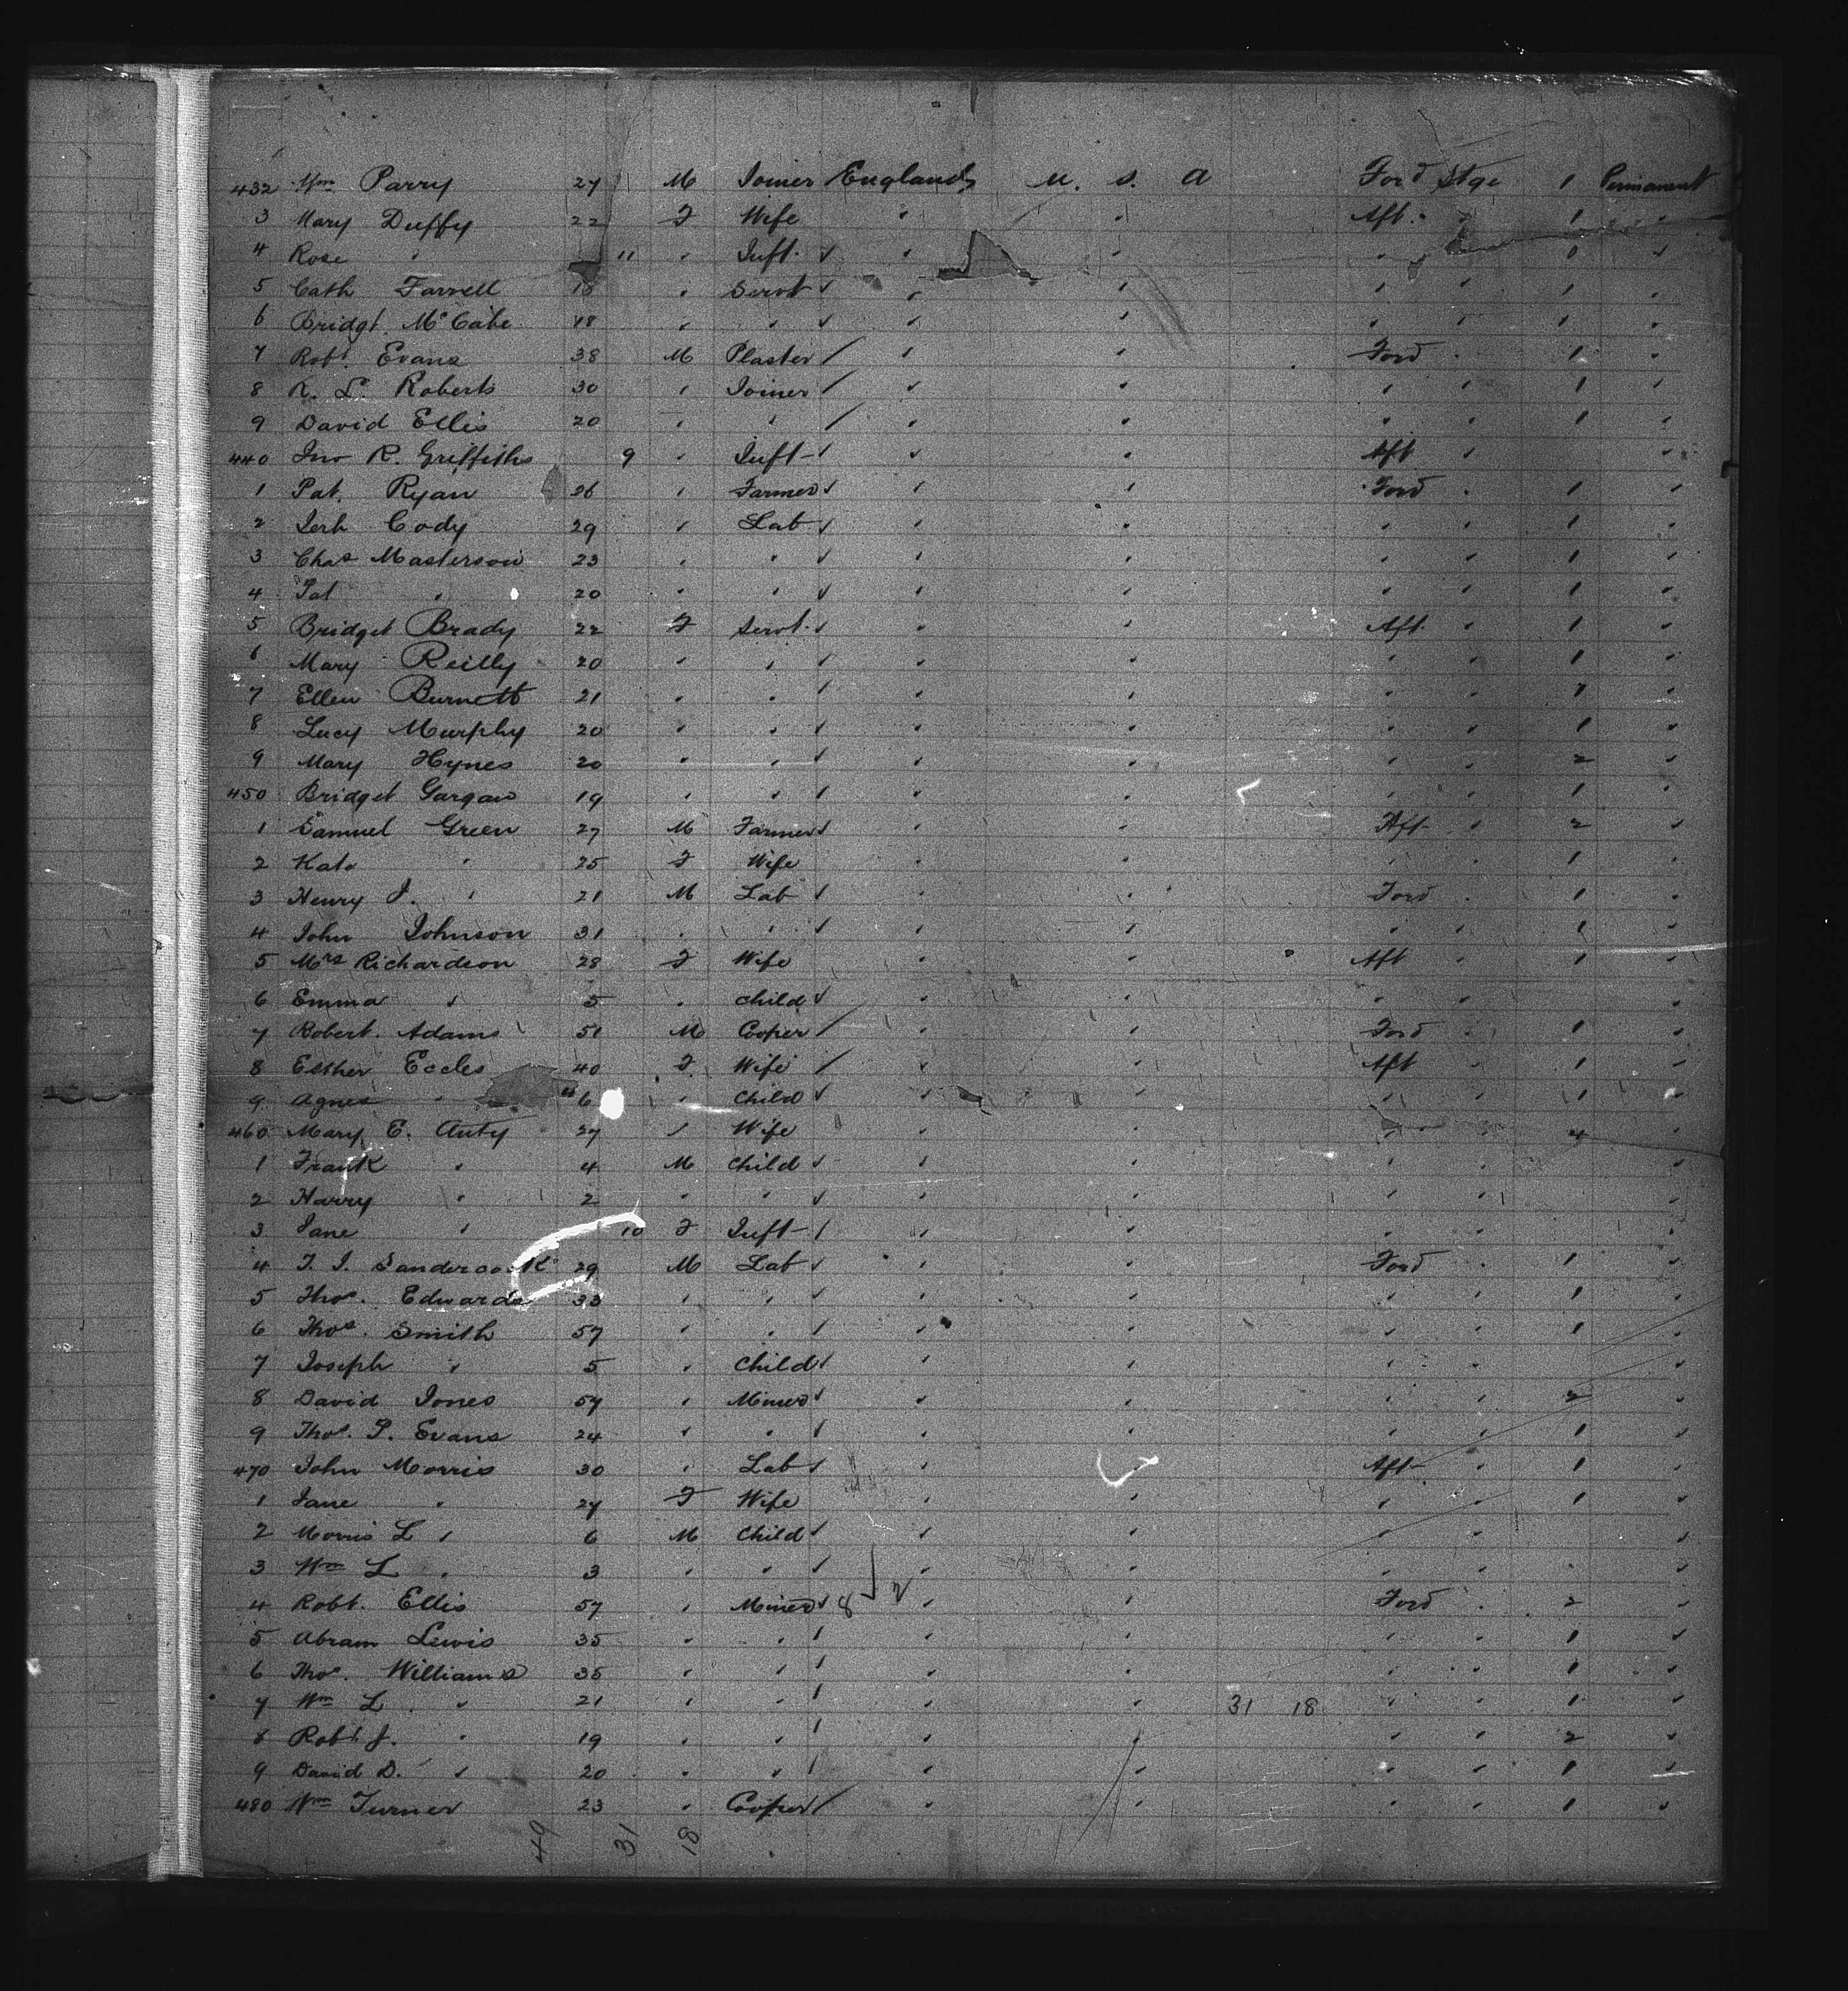 432 Wm Parry 27 M Joiner England U. S. A Ford Stge 1 Permanent
3 Mary Duffy 22 F Wife " " Aft. " 1 "
4 Rose " 11 " Inft. " " " " 1 "
5 Cath Farrell " Servt " " " " 1 "
6 Bridgt. McCabe 18 " " " " " " 1 "
7 Robt. Evans 38 M Plaster " " Ford " 1 "
8 R. L. Roberts 30 " Joiner " " " " 1 "
9 David Ellis 20 " " " " " " 1 "
440 Jno R. Griffiths 9 " Inft " " Aft " "
1 Pat. Ryan 26 " Farmer " " Ford " 1 "
2 Jerh Cody 29 " Lab " " " " 1 "
3 Chas Masterson 23 " " " " " " 1 "
4 Pat " 20 " " " " " " 1 "
5 Bridget Brady 22 F Servt. " " Aft " 1 "
6 Mary Reilly 20 " " " " " " 1 "
7 Ellen Burnett 21 " " " " " " 1 "
8 Lucy Murphy 20 " " " " " " 1 "
9 Mary Hynes 20 " " " " " " 2 "
450 Bridget Gargan 19 " " " " " " 1 "
1 Samuel Green 27 M Farmer " " Aft " 2 "
2 Kate " 25 F Wife " " " " 1 "
3 Henry J. " 21 M Lab " " Ford " 1 "
4 John Johnson 31 " " " " " " 1 "
5 Mrs Richardson 28 F Wife " " Aft " 1 "
6 Emma " 5 " Child " " " " "
7 Robert. Adams 51 M Cooper " " Ford " 1 "
8 Esther Eccles 40 F Wife " " Aft " 1 "
9 Agnes " 6 " Child " " " " 1 "
460 Mary E. Auty 27 " Wife " " " " 4 "
1 Frank " 4 M Child " " " " "
2 Harry " 2 " " " " " " "
3 Jane " 10 F Inft " " " " "
4 T. J. Sandercock 29 M Lab " " Ford " 1 "
5 Thos. Edwards 33 " " " " " " 1 "
6 Thos. Smith 57 " " " " " " 1 "
7 Joseph " 5 " Child " " " " "
8 David Jones 54 " Miner " " " " 2 "
9 Thos. P. Evans 24 " " " " " " 1 "
470 John Morris 30 " Lab " " Aft " 1 "
1 Jane " 27 F Wife " " " " 1 "
2 Morris L " 6 M Child " " " " "
3 Wm L " 3 " " " " " " "
4 Robt. Ellis 57 " Miner 8 " " Ford " 2 "
5 Abram Lewis 35 " " " " " " 1 "
6 Thos. Williams 35 " " " " " " 1 "
7 Wm L. " 21 " " " " 31 18 " " 1 "
8 Robt J. " 19 " " " " " " 2 "
9 David D. " 20 " " " " " " 1 "
480 Wm Turner 23 " Cooper " " " " 1 "
49 31 18